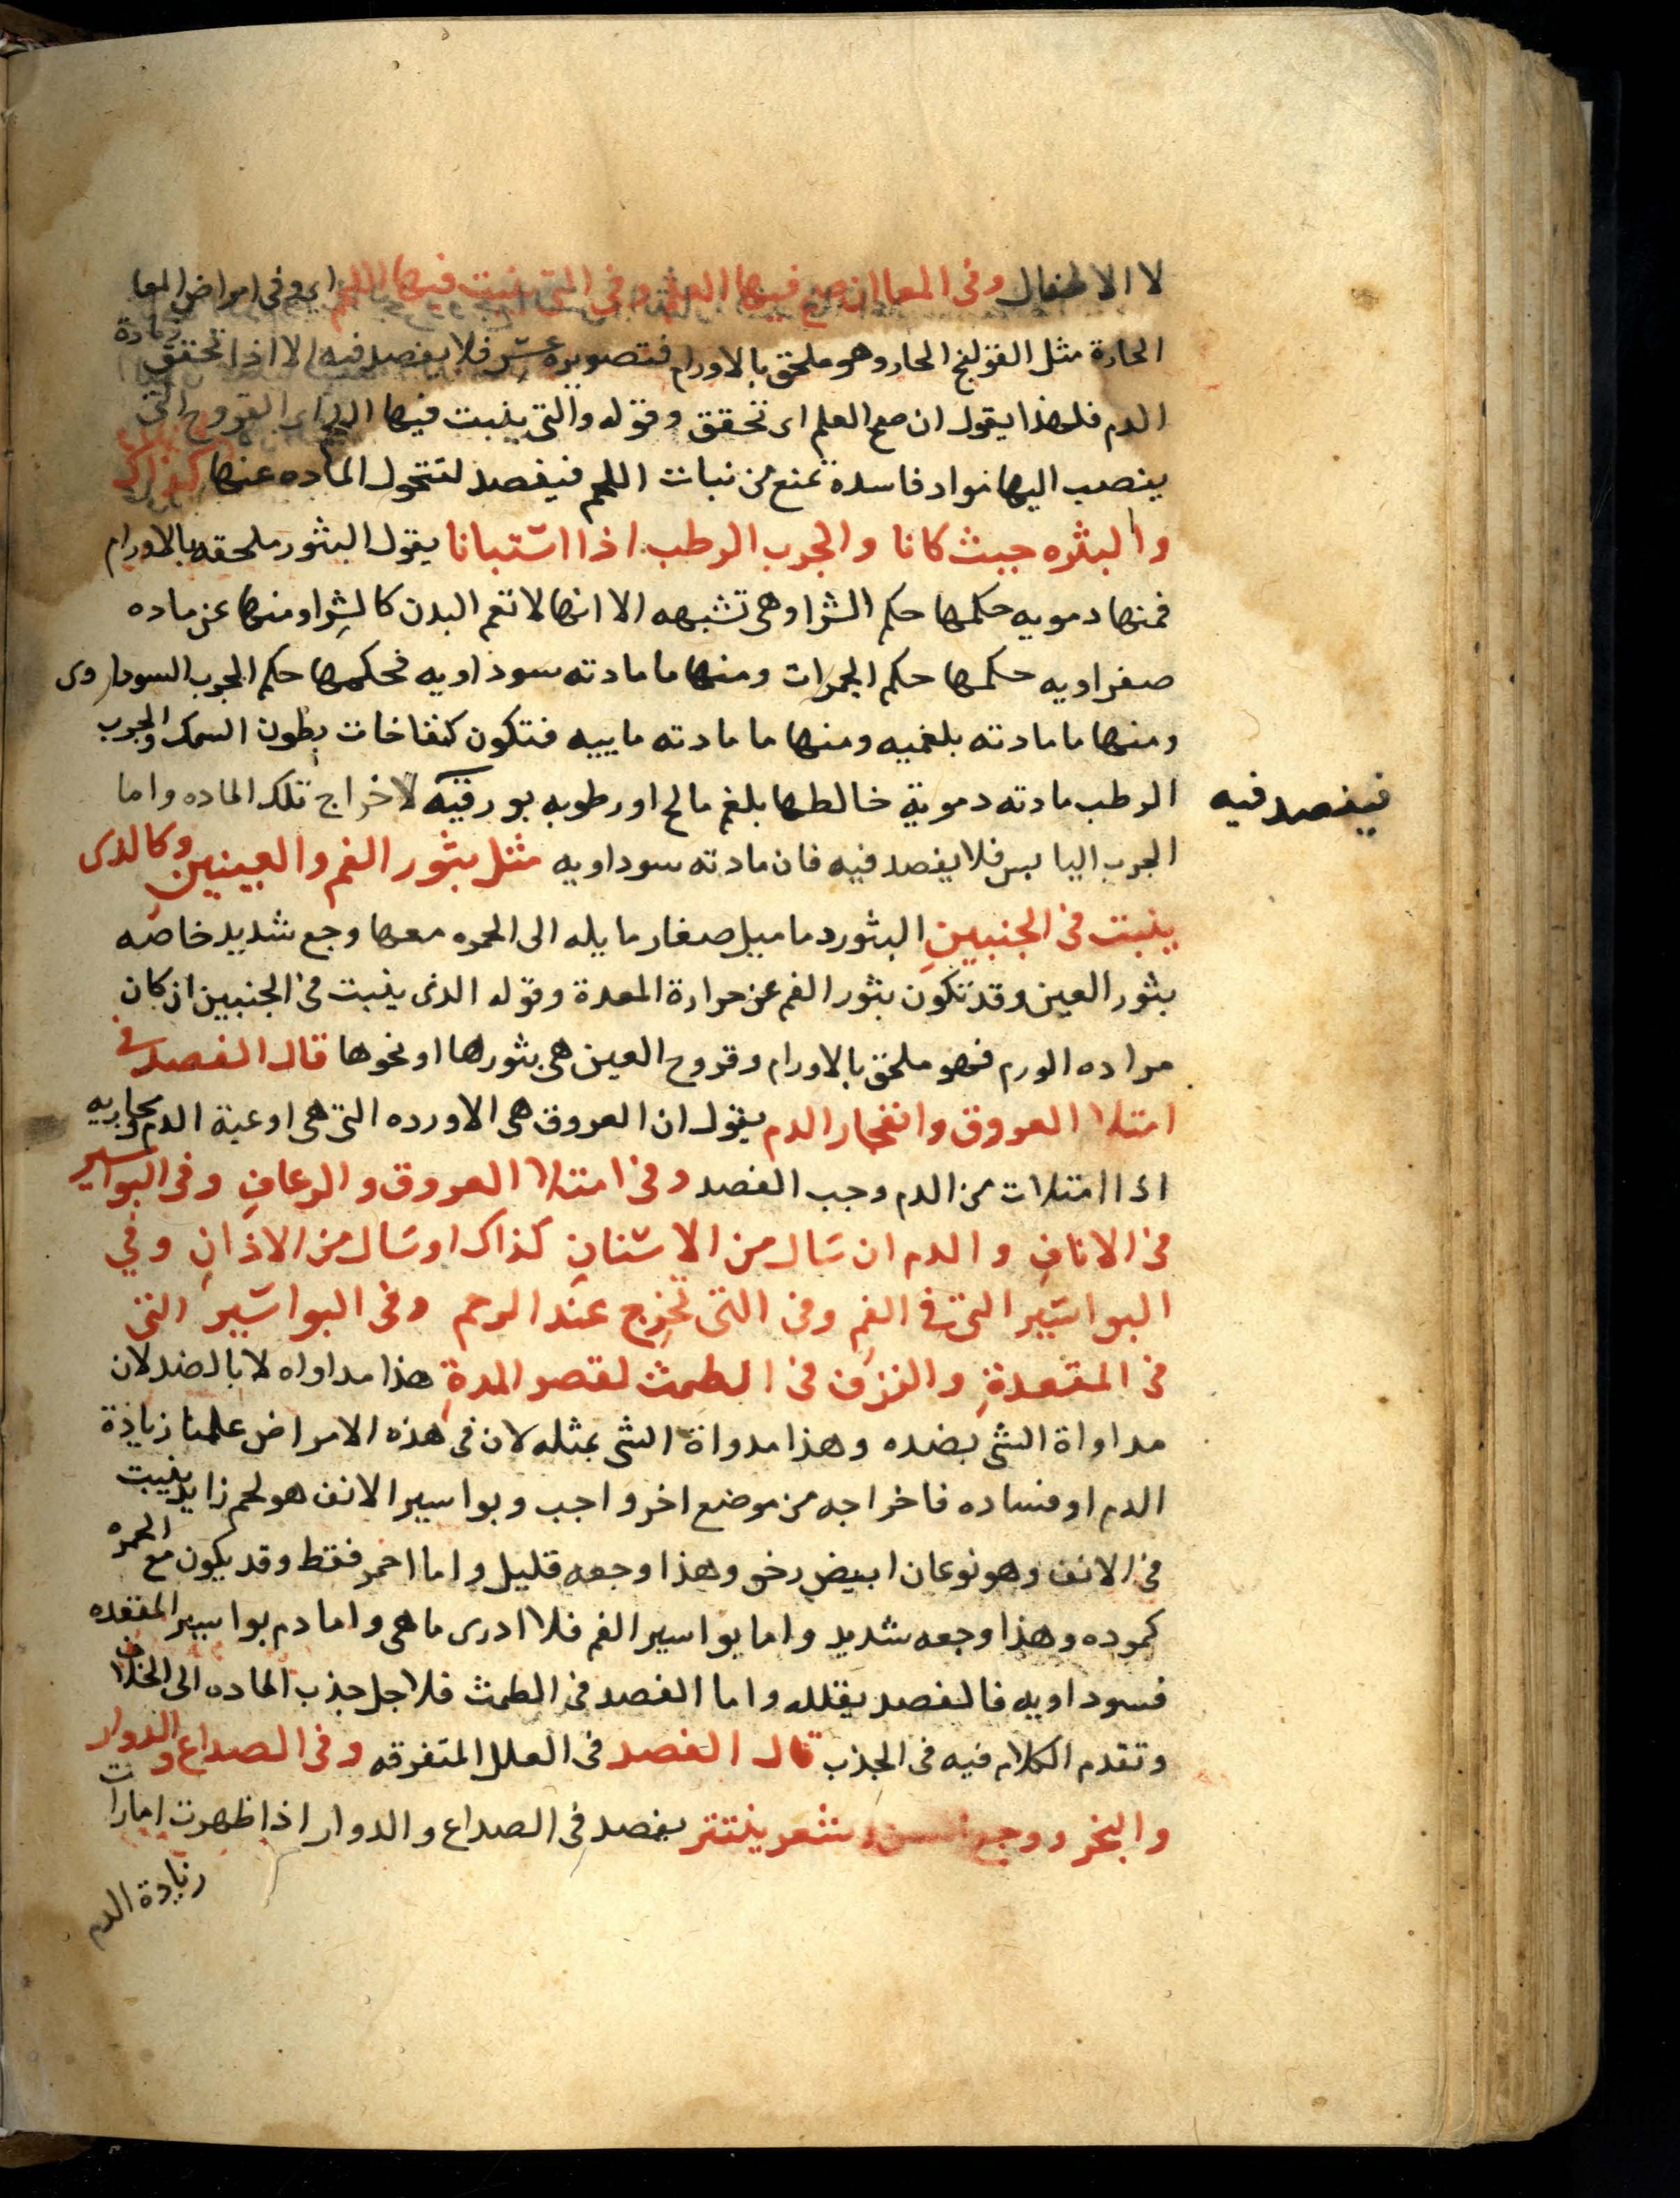 لا الاطفال وفى المعا ان صح فيها العلم وفى التى ينبت فيها اللحم اى وفى امراض المعا
الحارة مثل القولنج الحار وهو ملحق بالاورام فتصويره عسر فلا يفصد فيه الا اذا تحقق زيادة
الدم فلهذا يقول ان صح العلم اى تحقق وقوله والتى ينبت فيها اللحم اى القروح التى
ينصب اليها مواد فاسدة تمنع من نبات اللحم فيفصد لتتحول الماده عنها كذاك
والبثره حيث كانا والجرب الرطب اذا استبانا يقول البثور ملحقه بالاورام
فمنها دمويه حكمها حكم الشرا وهى تشبهه الا انها لا تعم البدن كالشرا ومنها عن ماده
صفراويه حكمها حكم الجمرات ومنها ما مادته سوداويه فحكمها حكم الجرب السوداوى
ومنها ما مادته بلغميه ومنها ما مادته ماييه فتكون كنفاخات بطون السمك والجرب
الرطب مادته دموية خالطها بلغم مالح او رطوبه بورقيه لاخراج تلك الماده واما
فيفصد فيه
الجرب اليابس فلا يفصد فيه فان مادته سوداويه مثل بثور الفم والعينين وكالذى
ينبت فى الجنبين البثور دماميل صغار مايله الى الحمره معها وجع شديد خاصه
بثور العين وقد تكون بثور الفم عن حرارة المعدة وقوله الذى ينبت فى الجنبين ان كان
مراده الورم فهو ملحق بالاورام وقروح العين هى بثورها او نحوها قال الفصد فى
امتلا العروق وانفجار الدم يقول ان العروق هى الاورده التى هى اوعية الدم ومجاريه
اذا امتلات من الدم وجب الفصد وفى امتلا العروق والرعاف وفى البواسير
فى الاناف والدم ان سال من الاسنان كذاك او سال من الاذان وفي
البواسير التى فى الفم وفى التى تخرج عند الرحم وفى البواسير التى
فى المقعدة والنزف فى الطمث لقصر المدة هذا مداواه لا بالضد لان
مداواة الشى بضده وهذا مدواة الشى بمثله لان فى هذه الامراض علمنا زيادة
الدم او فساده فاخراجه من موضع اخر واجب وبواسير الانف هو لحم زايد ينبت
فى الانف وهو نوعان ابيض رخو وهذا وجعه قليل واما احمر فقط وقد يكون مع الحمره
كموده وهذا وجعه شديد واما بواسير الفم فلا ادرى ما هى واما دم بواسير المقعده
فسوداويه فالفصد يقلله واما الفصد فى الطمث فلاجل جذب الماده الى الخلاف
وتقدم الكلام فيه فى الجذب قال الفصد فى العلل المتفرقه وفى الصداع والدوار
والبخر ووجع وشعر ينتثر يفصد فى الصداع والدوار اذا ظهرت امارات
زيادة الدم